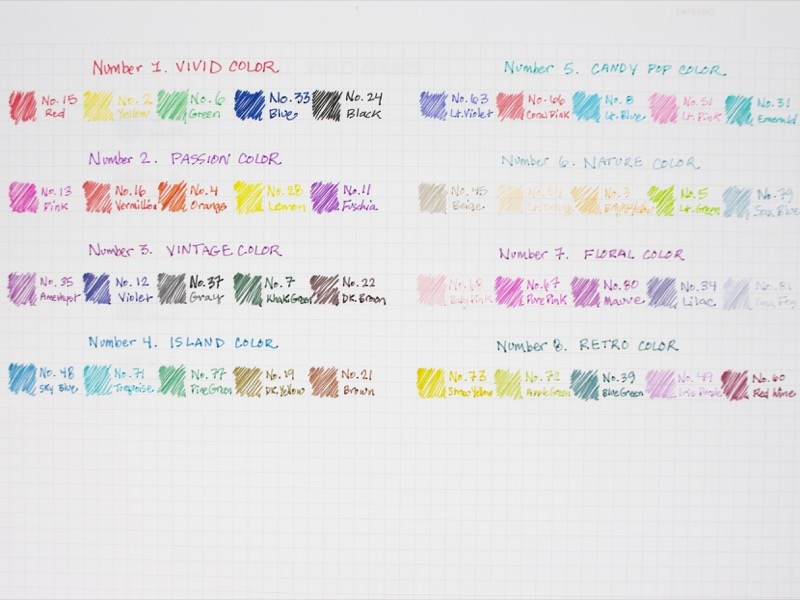 Number 1. VIVID COLOR
No.15 Red
No.2 Yellow
No.6 Green
No.33 Blue
No.24 Black
Number 2. PASSION COLOR
No.13 Pink
No.16 Vermillion
No.4 Orange
No.28 Lemon
No.11 Fuschia
Number 3. VINTAGE COLOR
No.35 Amethyst
No.12 Violet
No.37 Gray
No.7 Khaki Green
No.22 DK. Brown
Number 4. ISLAND COLOR
No.48 Sky Blue
No.71 Turquoise
No.77 Pine Green
No.19 DK. Yellow
No.21 Brown
Number 5. CANDY POP COLOR
No.63 Lt. Violet
No.66 Coral Pink
No.8 Lt. Blue
No.51 Lt. Pink
No.31 Emerald
Number 6. NATURE COLOR
No.45 Beige
No.3
No.5 Lt. Green
No.79
Number 7. FLORAL COLOR
No.68 Baby Pink
No.67 Pure Pink
No.80 Mauve
No.34 Lilac
No.81
Number 8. RETRO COLOR
No.73 Straw Yellow
No.72 Apple Green
No.39 Blue Green
No.49
No.60 Red Wine